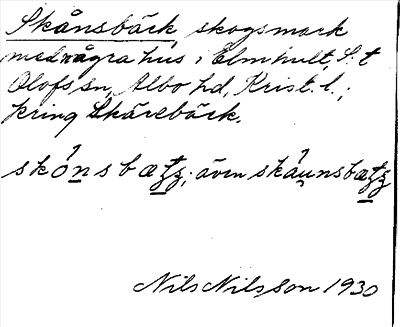 Skånsbäck, skogsmark
med några hus i Elmhult, S:t
Olofs sn, Albo hd, Krist. l.;
kring Skärebäck.
skónsbætʒ; även skáunsbætʒ
Nils Nilsson 1930